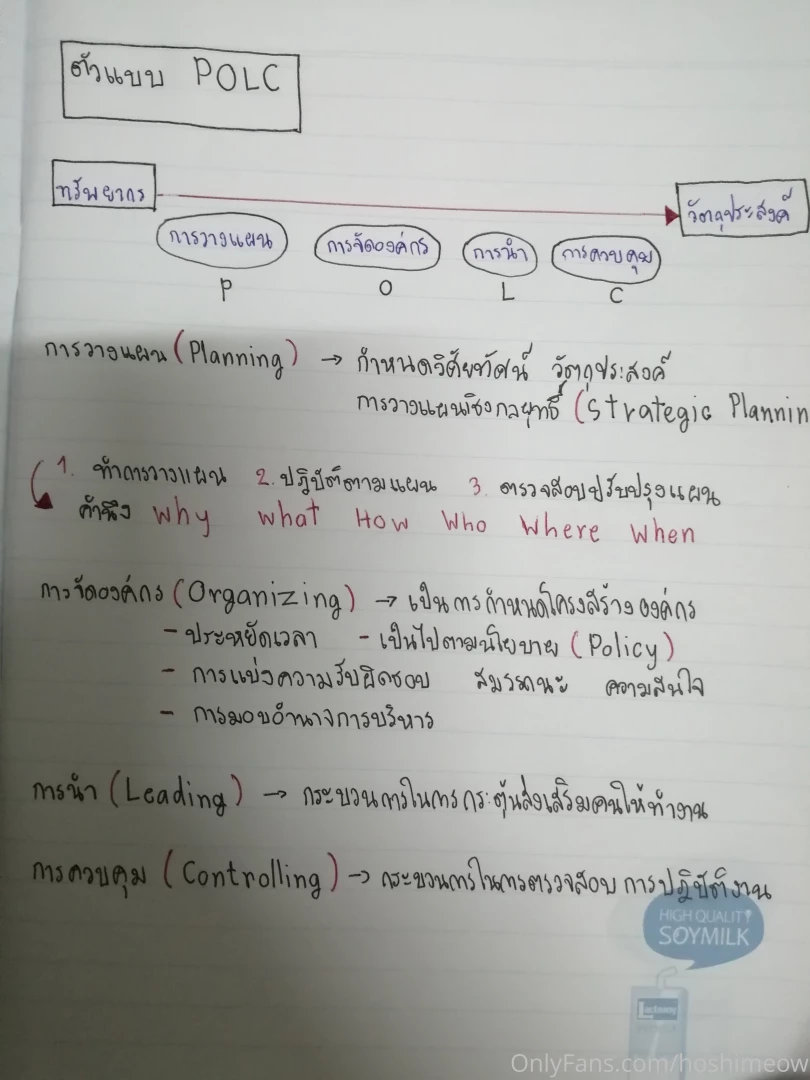 ตัวแบบ POLC
ทรัพยากร
วัตถุประสงค์
การวางแผน การจัดองค์กร การนำ การควบคุม
P O L C
การวางแผน (Planning) → กำหนดวิสัยทัศน์ วัตถุประสงค์
การวางแผนเชิงกลยุทธิ์ (Strategic Plannin
1. ทำการวางแผน 2. ปฏิบัติตามแผน 3. ตรวจสอบปรับปรุงแผน
คำนึง Why what How Who Where When
การจัดองค์กร (Organizing) → เป็นการกำหนดโครงสร้างองค์กร
- ประหยัดเวลา - เป็นไปตามนโยบาย (Policy)
- การแบ่งความรับผิดชอบ สมรรถนะ ความสนใจ
- การมอบอำนาจการบริหาร
การนำ (Leading) → กระบวนการในการกระตุ้นส่งเสริมคนให้ทำงาน
การควบคุม (Controlling) → กระบวนการในการตรวจสอบ การปฏิบัติงาน
HIGH QUALITY
SOYMILK
Lactasoy
OnlyFans.com/hoshimeow